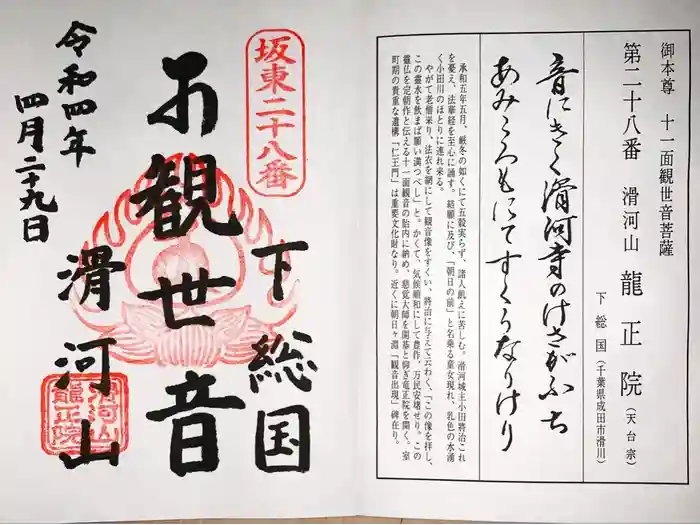 御本尊 十一面観世音菩薩
第二十八番 滑河山 龍正院(天台宗)
下総国(千葉県成田市滑川)
音にきく滑河寺のけさがふち
あみころもにてすくうなりけり
承和五年五月、厳冬の如くにて五穀実らず、諸人飢えに苦しむ。滑河城主小田将治これ
を憂え、法華経を至心に誦す。結願に及び、「朝日の前」と名乗る童女現れ、乳色の水湧
く小田川のほとりに連れ来る。
やがて老僧来り、法衣を網にして観音像をすくい、将治に与えて云わく、「この像を拝し、
この霊水を飲まば願い満つべし」と。かくて、気候順和にして豊作、万民安堵せり。この
霊仏を定朝作と伝える十一面観音の胎内に納め、慈覚大師を開基と仰ぎ竜正院を開く。室
町期の貴重な遺構「仁王門」は重要文化財なり。近くに朝日ヶ淵「観音出現」碑在り。
坂東二十八番
下総国
観世音
滑河山
滑河山
龍正院
令和四年
四月二十九日